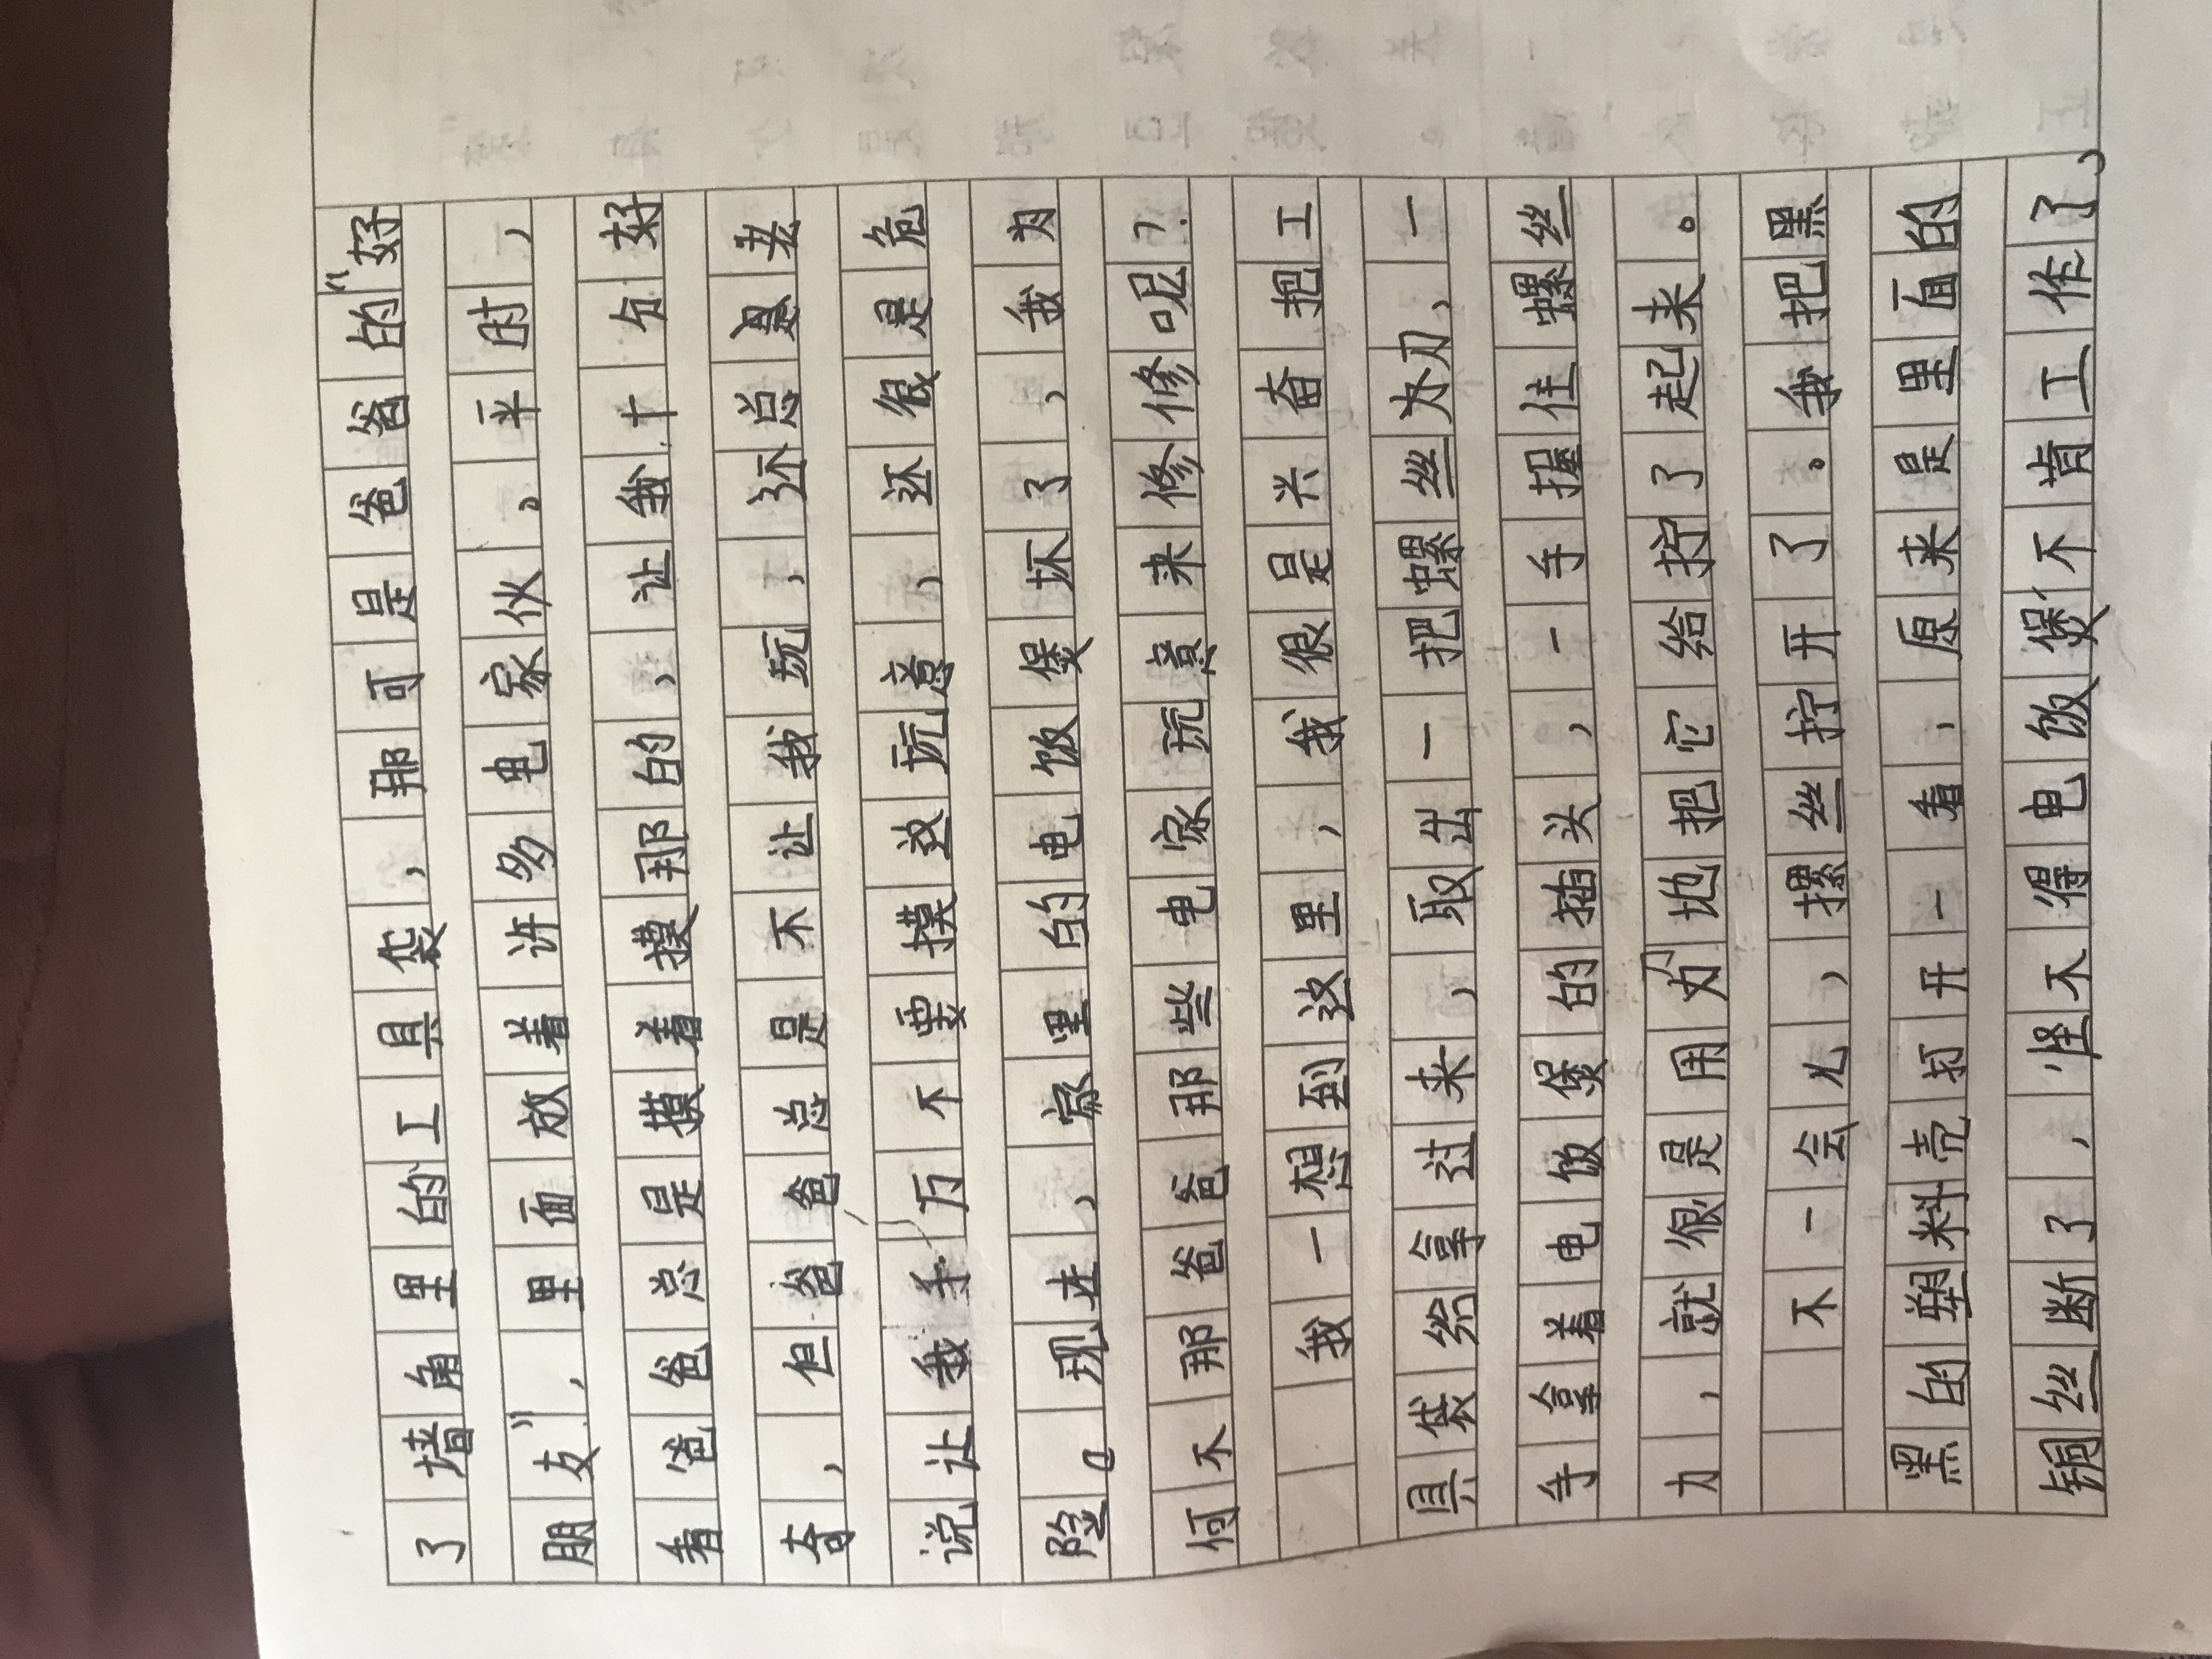 了墙角里的工具袋，那可是爸爸的“好
朋友”，里面放着许多电家伙。平时，
看爸爸总是摸着摸那的，让我十分好
奇，但爸爸总是不让我玩，还总是老
说让我千万不要摸这玩意，这很是危
险。现在，家里的电饭煲坏了，我为
何不那爸爸那些电家玩意来修修呢？
我一想到这里，我很是兴奋把工
具袋给拿过来，取出一把螺丝刀，一
手拿着电饭煲的插头，一手握住螺丝
刀，就很是用力地把它给拧了起来。
不一会儿，摞丝拧开了。我把黑
黑的塑料壳打开一看，原来是里面的
铜丝断了，怪不得电饭煲不肯工作了，